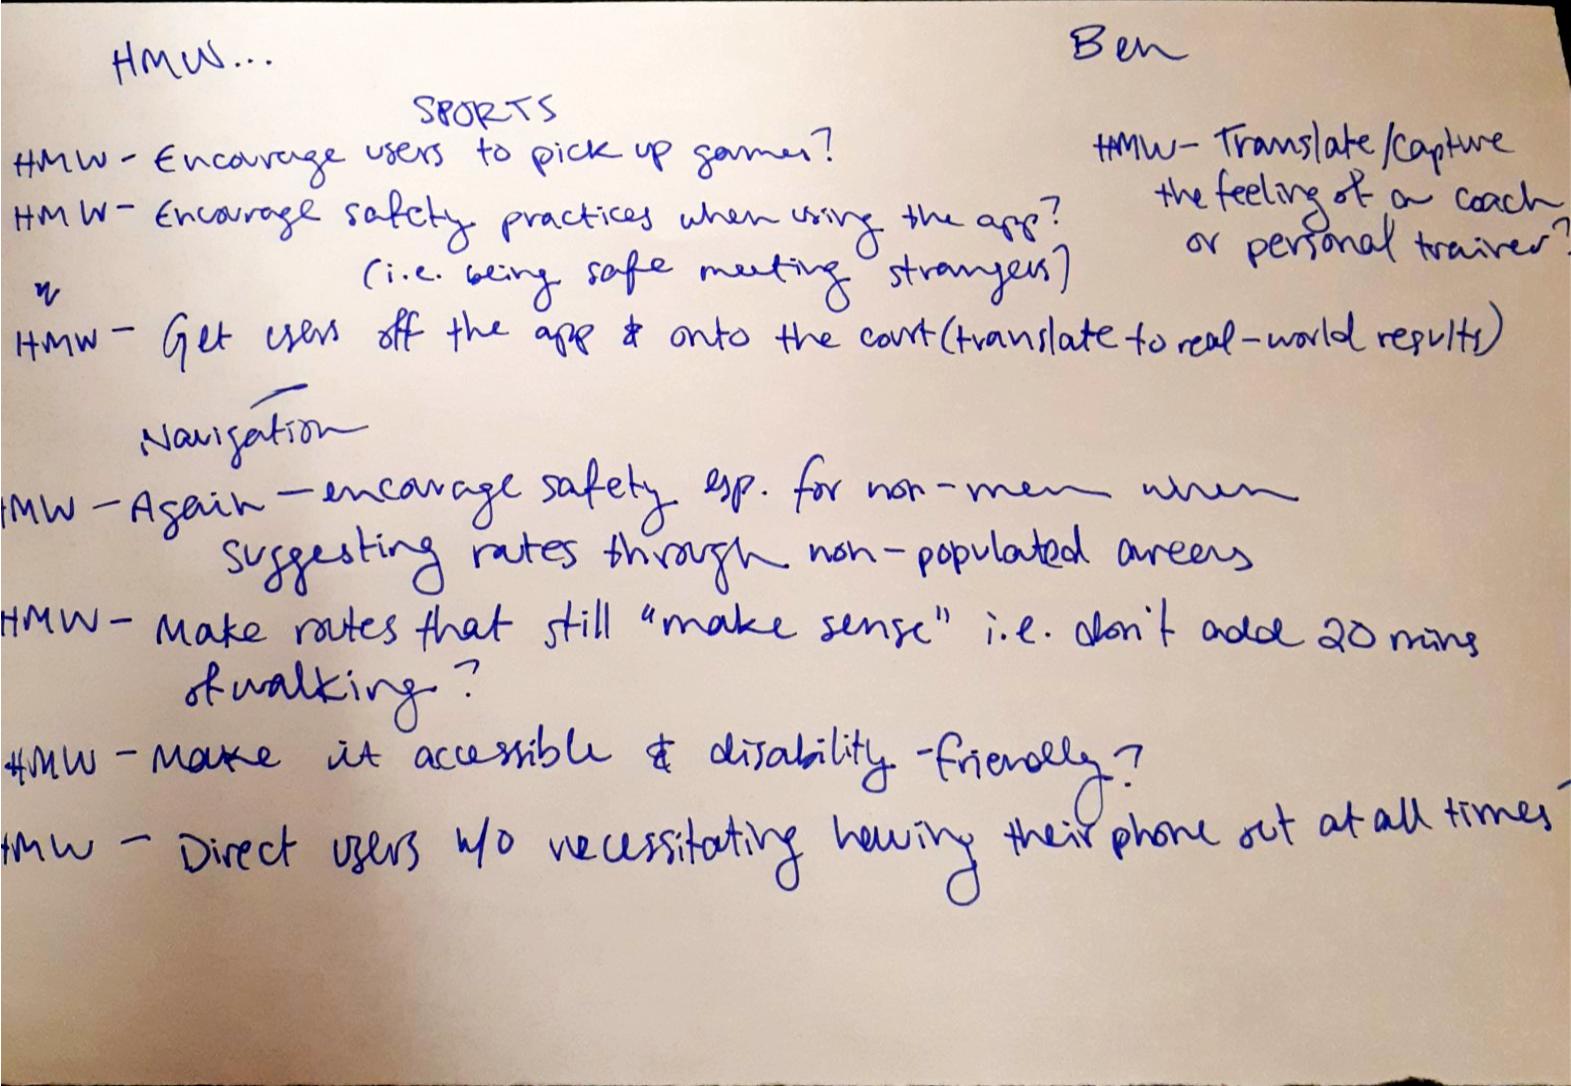 HMW...
Ben
SPORTS
HMW - Encourage users to pick up games?
HMW - Encourage safety practices when using the app?
(i.e. being safe meeting strangers)
HMW - Get users off the app & onto the court (translate to real-world results)
HMW - Translate/capture
the feeling of a coach
or personal trainer?
Navigation
HMW - Again - encourage safety esp. for non-men when
suggesting routes through non-populated areas
HMW - Make routes that still "make sense" i.e. don't add 20 mins
of walking?
HMW - Make it accessible & disability-friendly?
HMW - Direct users w/o necessitating having their phone out at all times